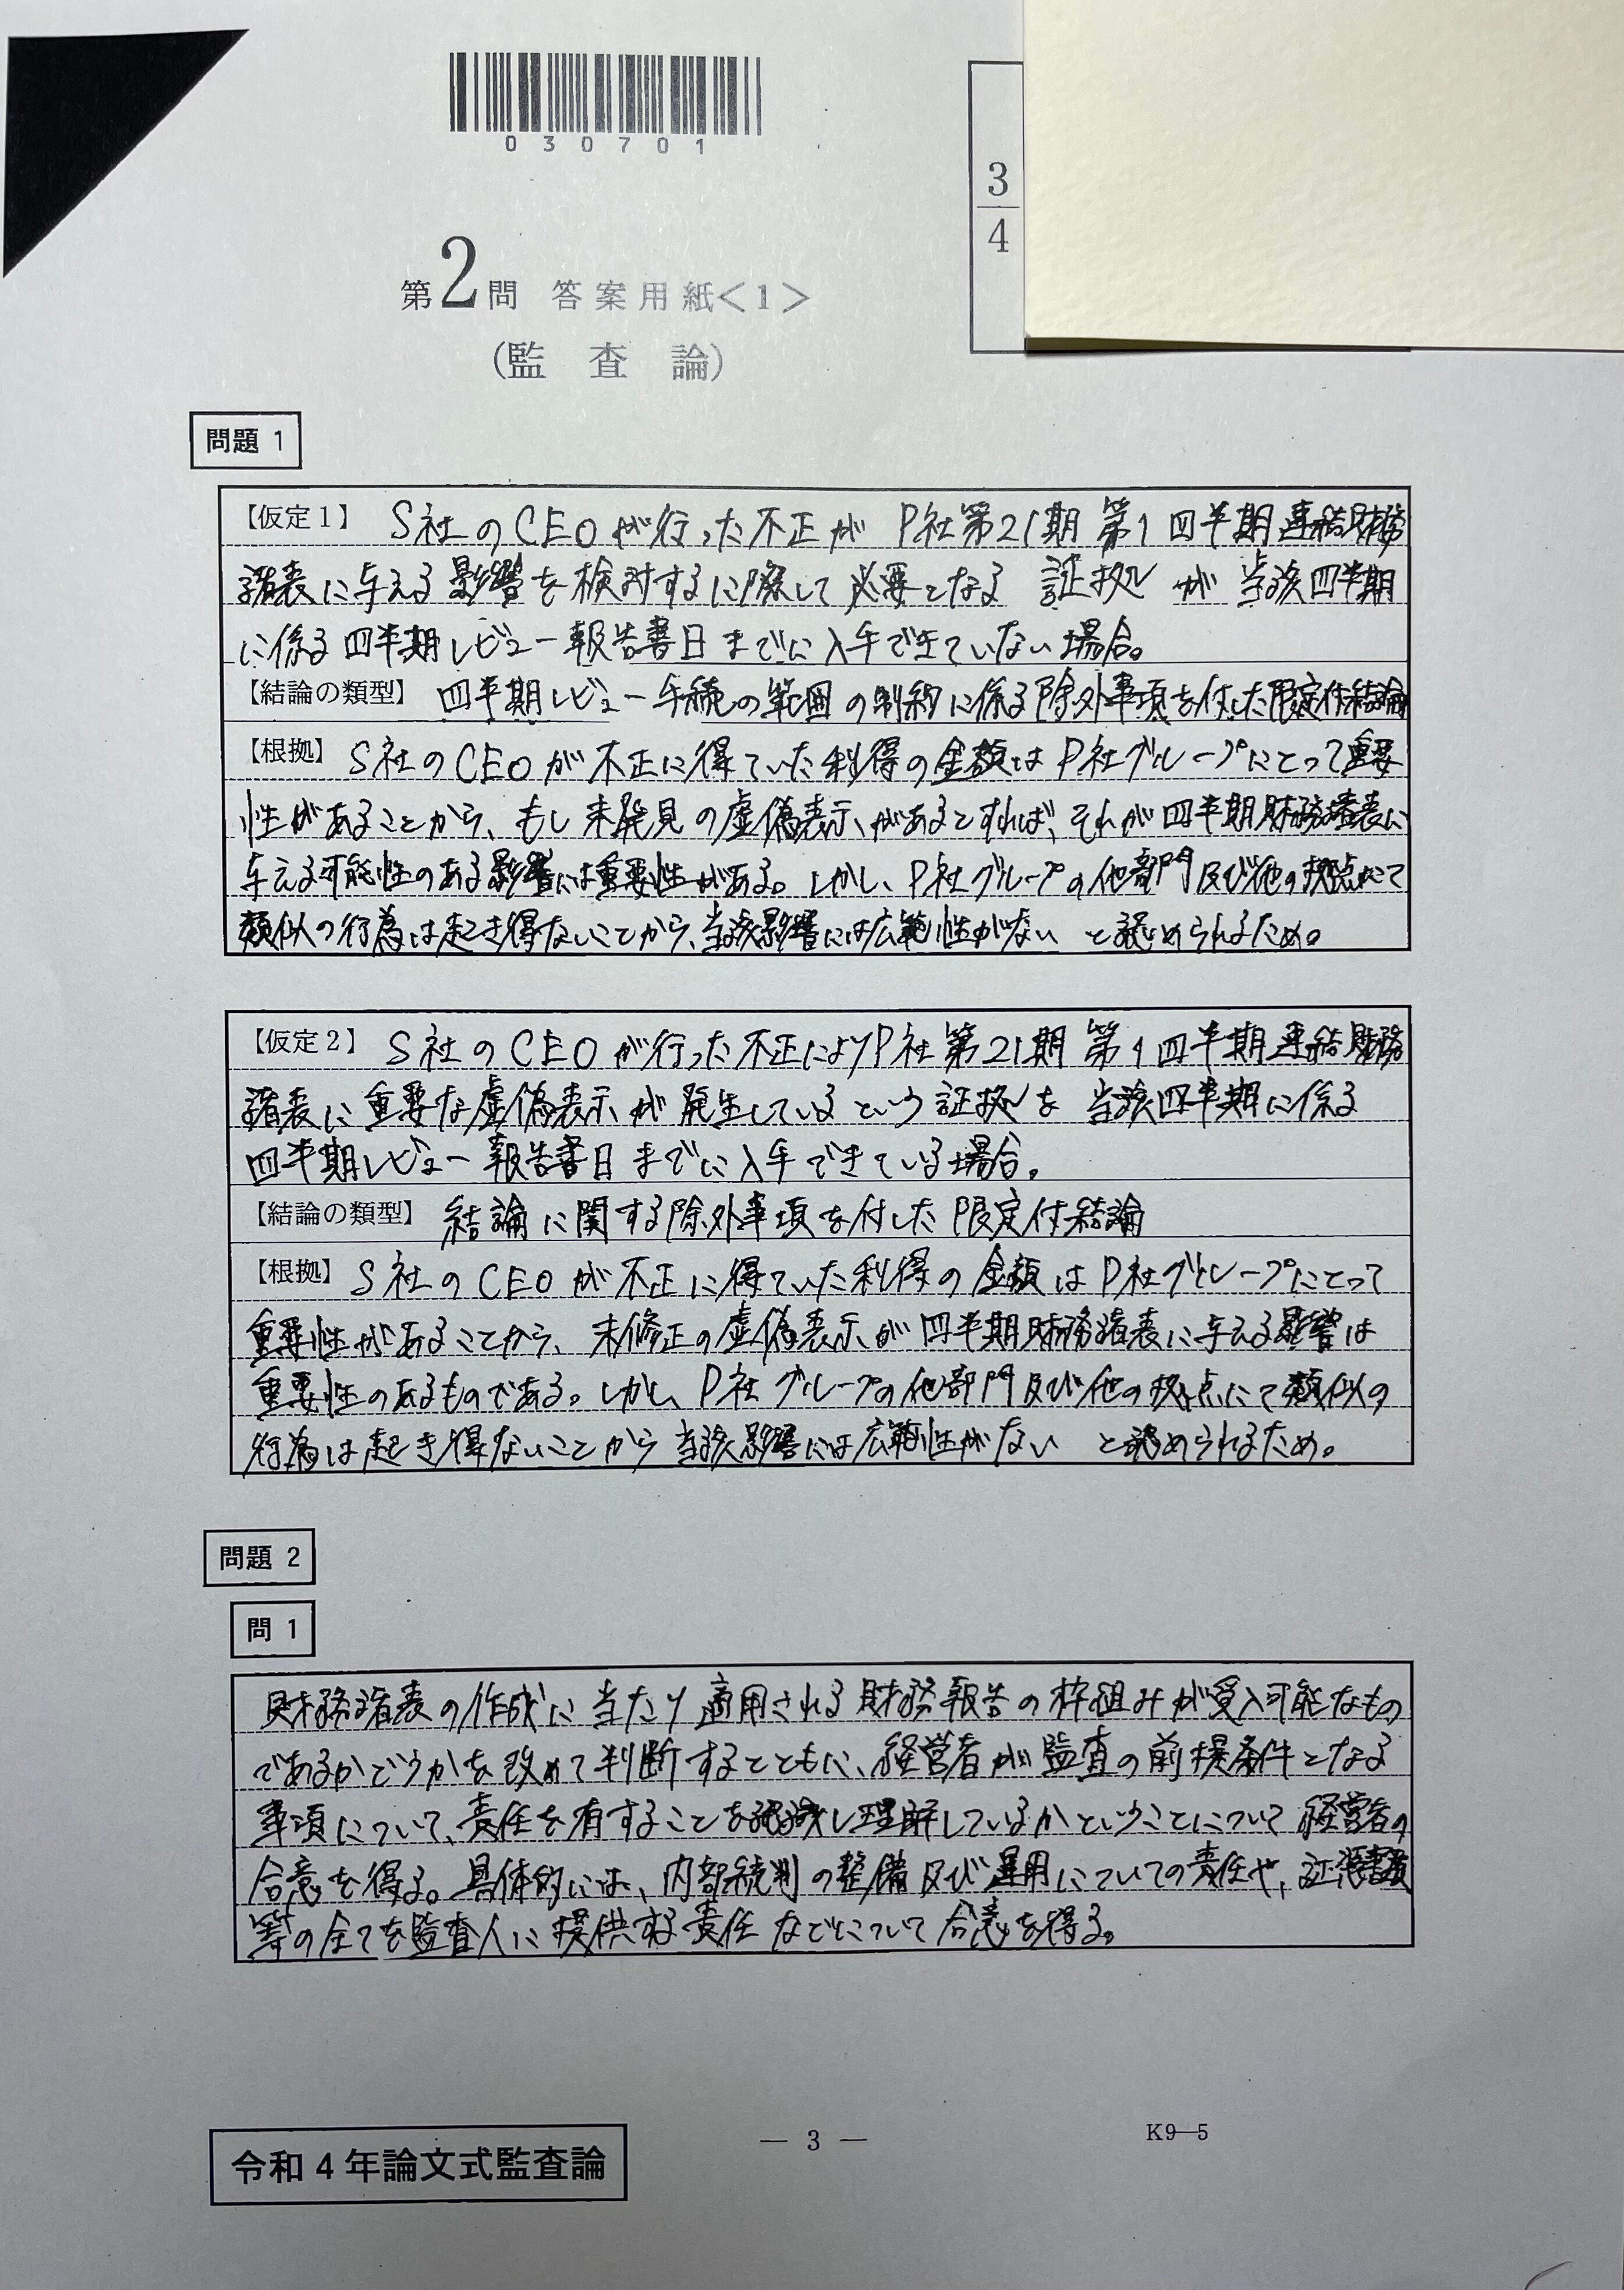 030701
3
4
第2問 答案用紙<1>
(監査論)
問題 1
【仮定1】 S社のCEOが行った不正が P社第21期 第1四半期連結財務
諸表に与える影響を検討するに際して必要となる 証拠 が 当該四半期
に係る四半期レビュー報告書日までに入手できていない場合。
【結論の類型】 四半期レビュー手続の範囲の制約に係る除外事項を付した限定付結論
【根拠】 S社のCEOが不正に得ていた利得の金額はP社グループにとって重要
性があることから、もし未発見の虚偽表示があるとすれば、それが四半期財務諸表に
与える可能性のある影響には重要性がある。しかし、P社グループの他部門及び他の拠点にて
類似の行為は起き得ないことから、当該影響には広範性がない と認められるため。
【仮定2】 S社のCEOが行った不正によりP社第21期 第1四半期連結財務
諸表に重要な虚偽表示が発生しているという証拠を 当該四半期に係る
四半期レビュー報告書日までに入手できている場合。
【結論の類型】 結論に関する除外事項を付した限定付結論
【根拠】 S社のCEOが不正に得ていた利得の金額はP社グループにとって
重要性があることから、未修正の虚偽表示が四半期財務諸表に与える影響は
重要性のあるものである。しかし、P社グループの他部門及び他の拠点にて類似の
行為は起き得ないことから当該影響には広範性がない と認められるため。
問題 2
問 1
財務諸表の作成に当たり適用される財務報告の枠組みが受入可能なもの
であるかどうかを改めて判断するとともに、経営者が監査の前提条件となる
事項について、責任を有することを認識し理解しているかということについて経営者の
合意を得る。具体的には、内部統制の整備及び運用についての責任や、
等の全てを監査人に提供する責任などについて合意を得る。
令和4年論文式監査論
— 3 —
K9—5